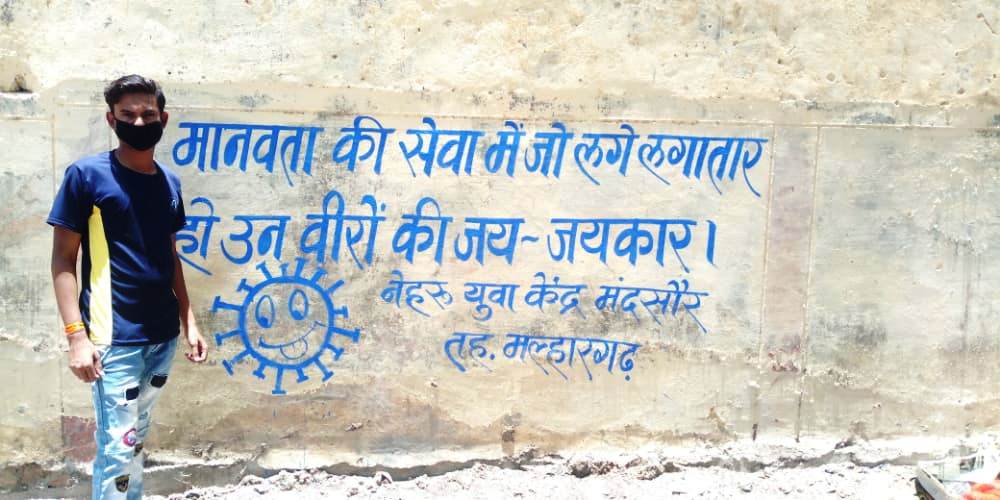 मानवता की सेवा में जो लगे लगातार
हो उन वीरों की जय~जयकार।
नेहरू युवा केंद्र मंदसौर
तह. मल्हारगढ़